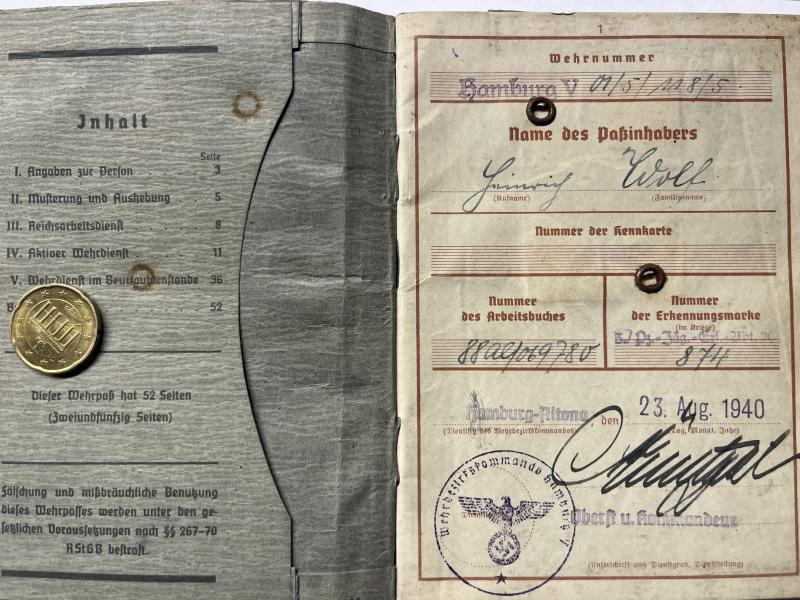 Inhalt
Seite
I. Angaben zur Person 3
II. Musterung und Aushebung 5
III. Reichsarbeitsdienst 8
IV. Aktiver Wehrdienst 11
V. Wehrdienst im Beurlaubtenstande 36
52
Dieser Wehrpaß hat 52 Seiten
(Zweiundfünfzig Seiten)
Fälschung und mißbräuchliche Benutzung
dieses Wehrpasses werden unter den ge-
setzlichen Voraussetzungen nach §§ 267-70
RStGB bestraft.
1
Wehrnummer
Hamburg V 01/5/118/5
Name des Paßinhabers
Heinrich Wolf
(Rufname) (Familienname)
Nummer der Kennkarte
Nummer
des Arbeitsbuches
Nummer
der Erkennungsmarke
(im Kriege)
874
Hamburg-Altona, den 23. Aug. 1940
(Dienstsitz des Wehrbezirkskommandos) (Tag, Monat, Jahr)
Wehrbezirkskommando Hamburg V
Oberst u. Kommandeur
(Unterschrift und Dienstgrad, Dienststellung)